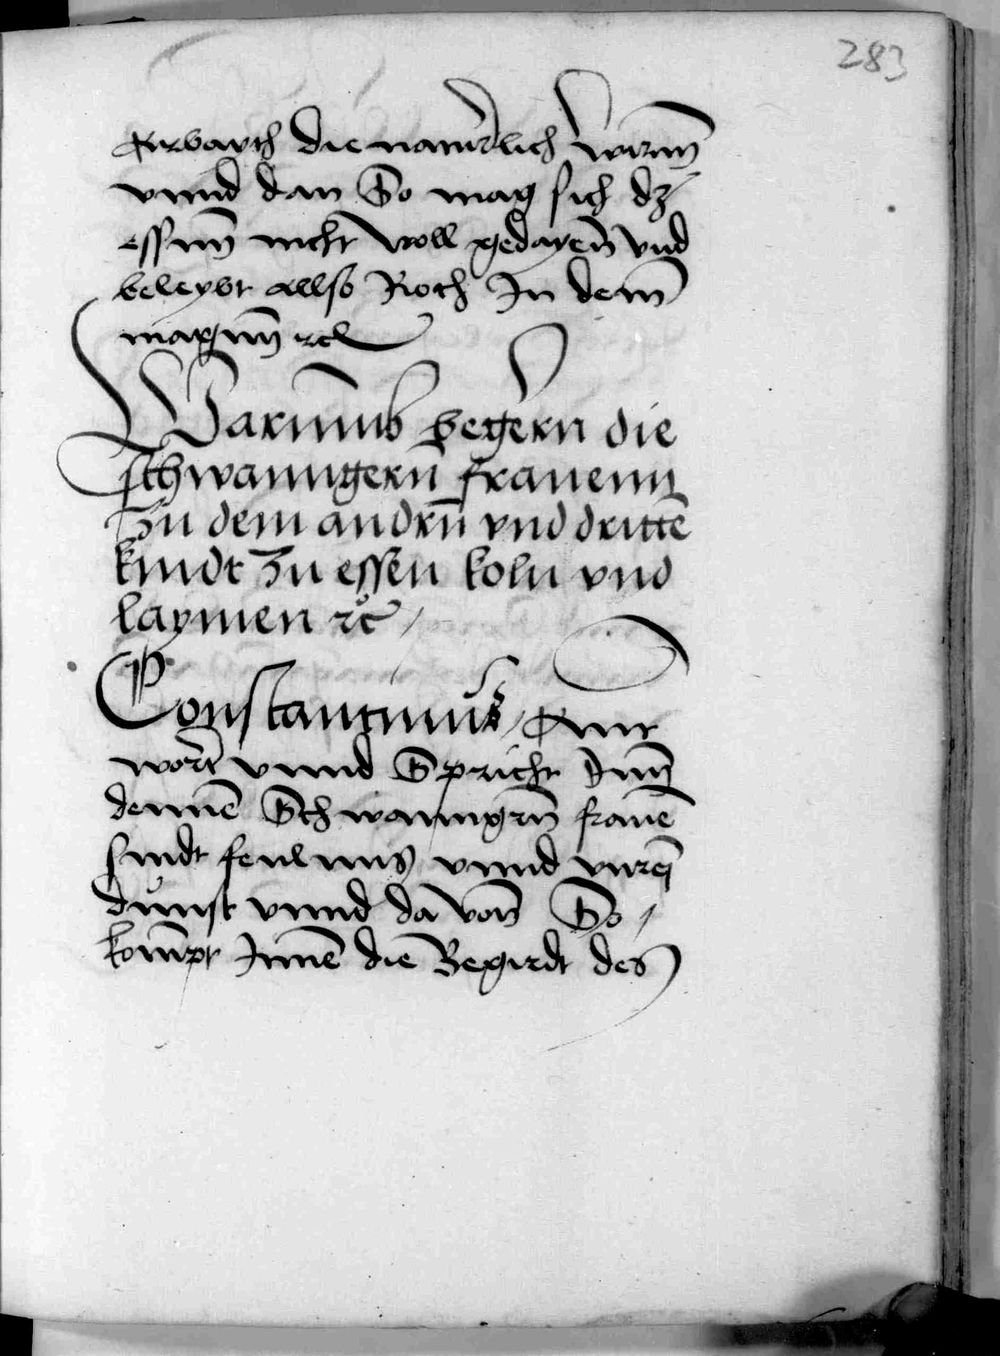 283
die naturlich wirm̄
vnnd dan So mag sich dz
essen̄ nicht woll gedayen̄ vnd
beleybt allso Roch In dem̄
magen̄ rc
Warumb begern die
schwanngern frauenn
Zu dem andrn̄ vnd drittē
kindt Zu essen koln vnd
laymen rc /
Constantinus / Ant
wort vnnd Spricht Inn̄
dennē Schwanngrn̄ frauē
sindt feulnus vnnd vnreȳ
dunst vnnd da von̄ So /
kom̄pt Innē die Begirdt des